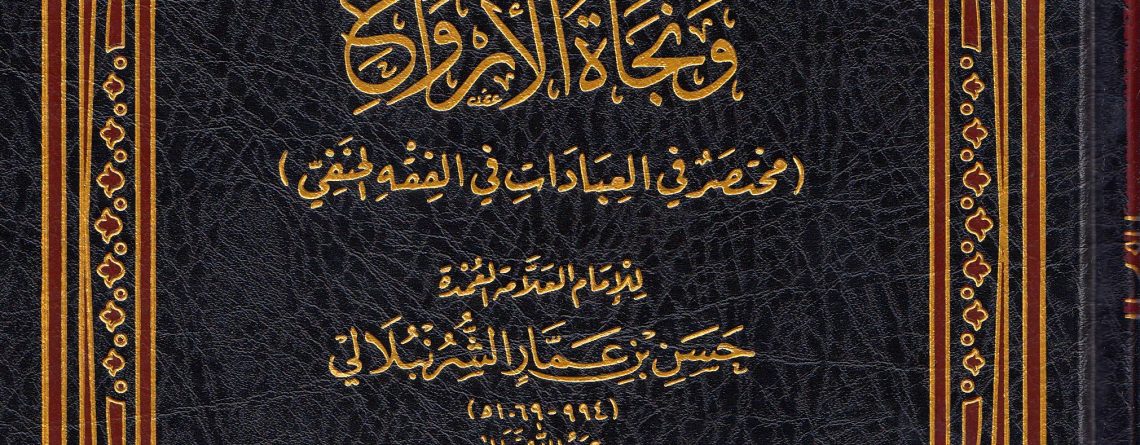 وَنَجَاةُ الْأَرْوَاحِ
(مُختَصَرٌ فِي العِبَادَاتِ فِي الفِقْهِ الحَنَفِيّ)
لِلإِمَامِ العَلَّامَةِ العُمْدَةِ
حَسَنِ بْنِ عَمَّارٍ الشُّرُنْبُلَالِي
(٩٩٤-١٠٦٩ه)